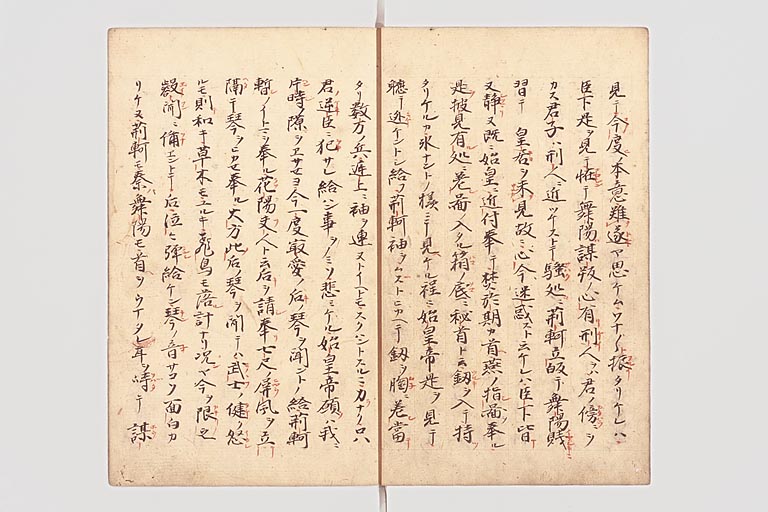 見テ今度ノ本意難遂ヤ思ケムワナヽ振タリケレハ
臣下是ヲ見テ恠テ舞陽謀叛ノ心有刑人ハ君ノ傍ヲ
カス君子ハ刑人ニ近ツカストテ騒処ニ荊軻立皈テ舞陽賎
習テ 皇居ヲ未見故ニ心今迷惑スト云ケレハ臣下皆
又静ヌ既ニ始皇ニ近付奉テ樊於期カ首燕ノ指図奉ル
是披見有処ニ巻図ノ入タル箱ノ底ニ秘首ト云釼ヲ入テ持
タリケルカ氷ナントノ様ニテ見ケル程ニ始皇帝是ヲ見テ
聴テ逃ケントシ給ヲ荊軻袖ヲムストヒカヘテ釼ヲ胸ニ差當
タリ数万ノ兵庭上ニ袖ヲ連ストイヘトモスクハントスルニ力ナノ只
君逆臣ニ犯サレ給ハン事ヲノミソ悲ミケル始皇帝願ハ我ニ
片時ノ隙ヲエサセヨ今一度最愛ノ后ノ琴ヲ聞ントノ給荊軻
暫ノイトマヲ奉ル花陽夫人ト云后ヲ請奉七尺ノ屏風ヲ立
隔テ琴ヲヒカセ奉ル大方此后ノ琴ヲ聞テハ武士ノ健ク怒
ルモ則和キ草木モユルキ飛鳥モ落計ナリ況ヤ今ヲ限ニ
叡聞ニ備エントテ后泣々弾給ケン琴ノ音サコソ面白カ
リケメ荊軻モ秦舞陽モ首ヲウナタレ耳ヲ峙テ 謀